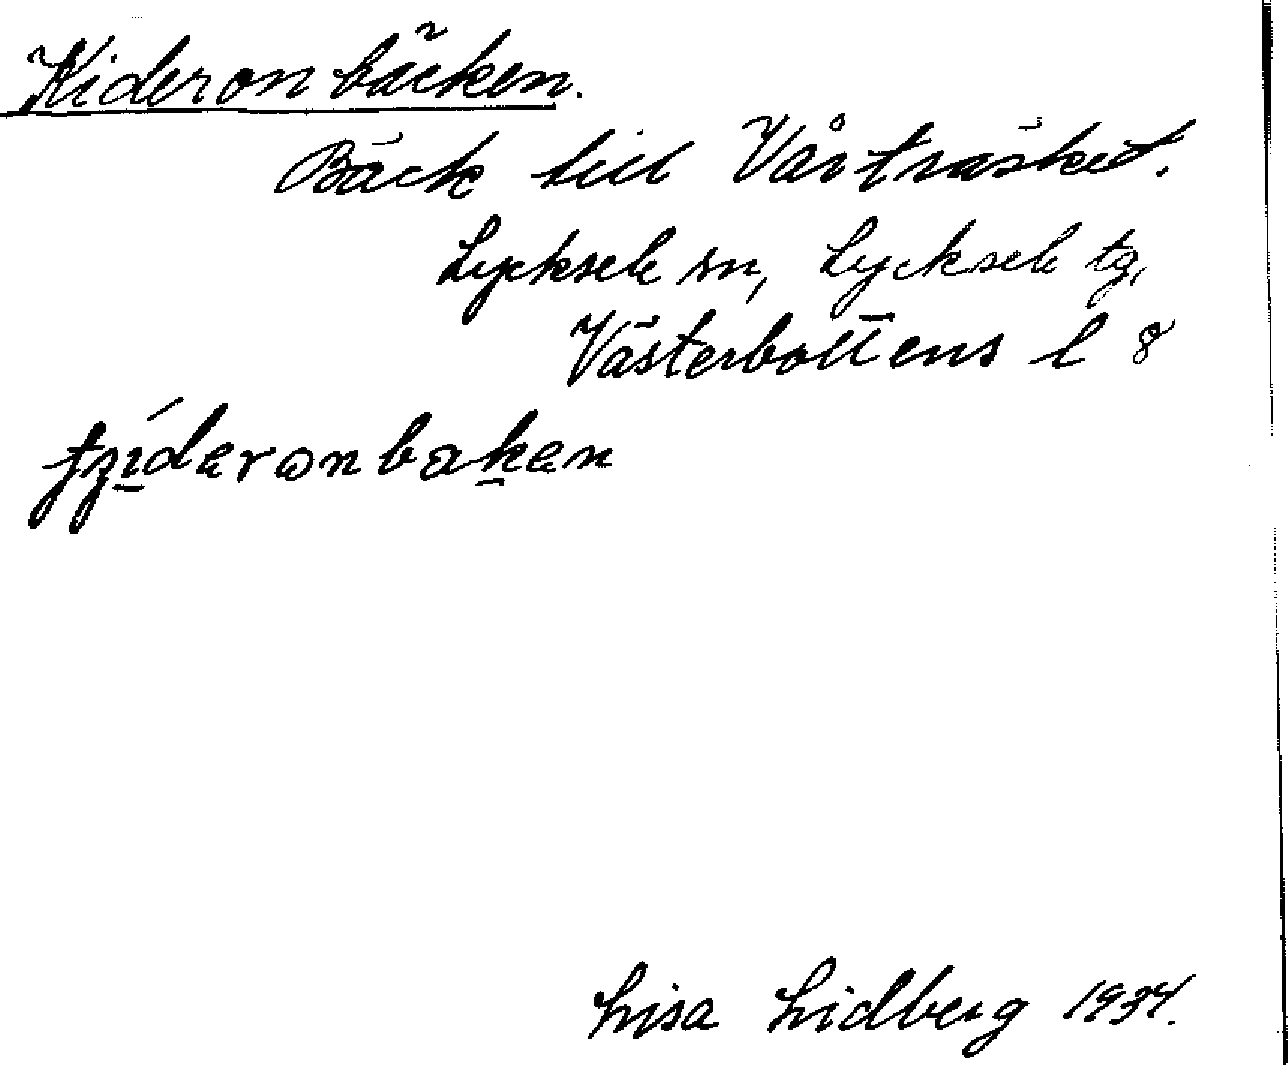 Kideronbäcken.
Bäck till Vårträsket.
Lycksele sn, Lycksele tg,
Västerbottens l 8
Lisa Lidberg 1934.